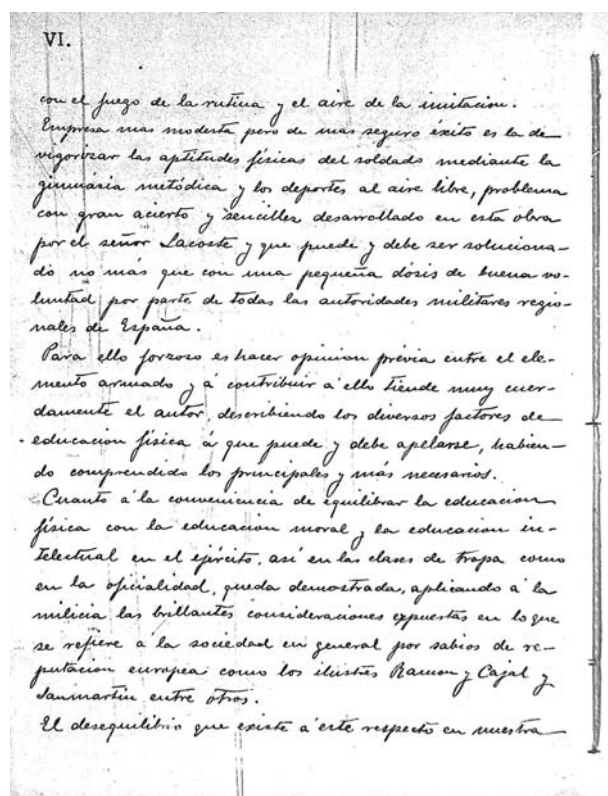 VI.
con el fuego de la rutina y el aire de la imitacion.
Empresa mas modesta pero de mas seguro éxito es la de
vigorizar las aptitudes físicas del soldado mediante la
gimnasia metódica y los deportes al aire libre, problema
con gran acierto y sencillez desarrollado en esta obra
por el señor Lacoste y que puede y debe ser soluciona-
do no más que con una pequeña dósis de buena vo-
luntad por parte de todas las autoridades militares regio-
nales de España.
Para ello forzoso es hacer opinion prévia entre el ele-
mento armado y á contribuir á ello tiende muy cuer-
damente el autor, describiendo los diversos factores de
educacion física á que puede y debe apelarse, habien-
do comprendido los principales y más necesarios.
Cuanto á la conveniencia de equilibrar la educacion
física con la educacion moral y la educacion in-
telectual en el ejército, así en las clases de tropa como
en la oficialidad, queda demostrada, aplicando á la
milicia las brillantes consideraciones expuestas en lo que
se refiere á la sociedad en general por sabios de re-
putacion europea como los ilustres Ramon y Cajal y
Sanmartin entre otros.
El desequilibrio que existe á este respecto en nuestra